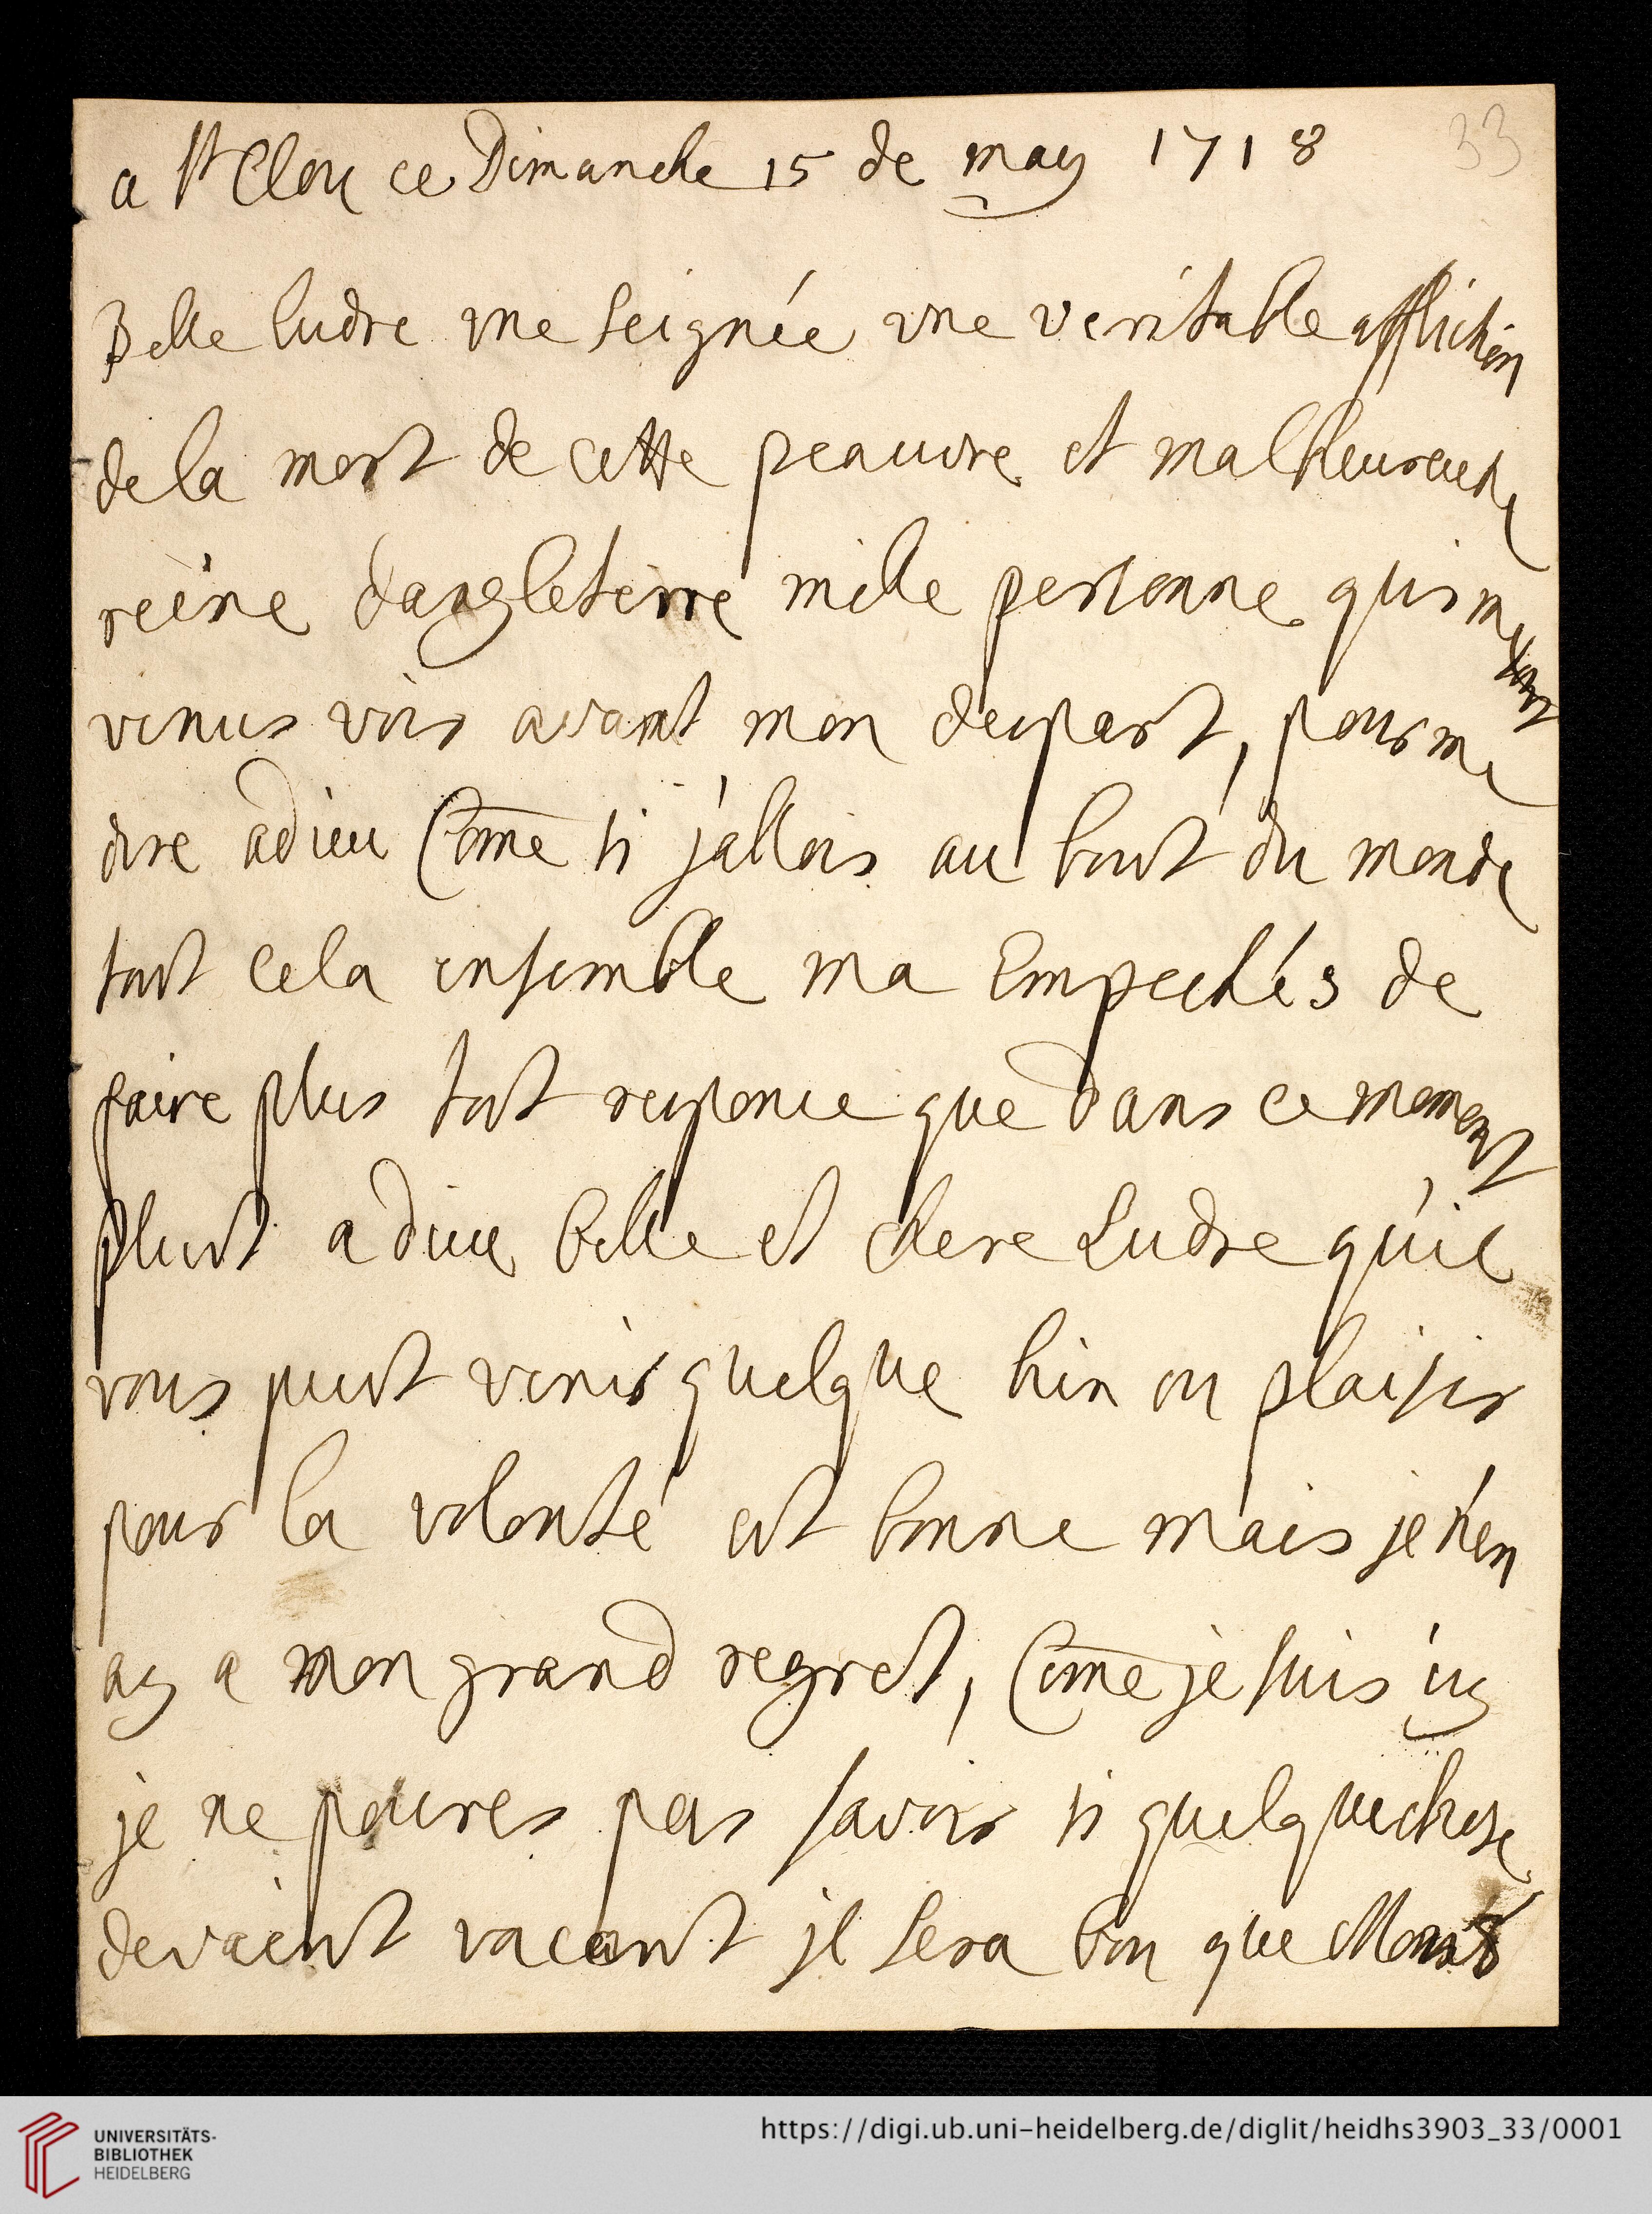 a St Clou ce Dimanche 15 de may 1718
33
Belle ludre une seignée une veritable affliction
de la mort de cette peauvre et malheureuse
reine dangleterre mille personne qui me sont
venus voir avant mon despart, pour me
dire adieu Come si j'allois au bout du monde
tout cela ensemble ma Empechés de
faire plus tost responce que dans ce moment
plust a dieu belle et chere Ludre qu'il
vous pust venir quelque bien ou plaisir
pour la volonté est bonne mais je n'en
ay a mon grand regret, Come je suis icy
je ne poures pas savoir si quelque chose
devaient vacant jl sera bon que
UNIVERSITÄTS-
BIBLIOTHEK
HEIDELBERG
https://digi.ub.uni-heidelberg.de/diglit/heidhs3903_33/0001